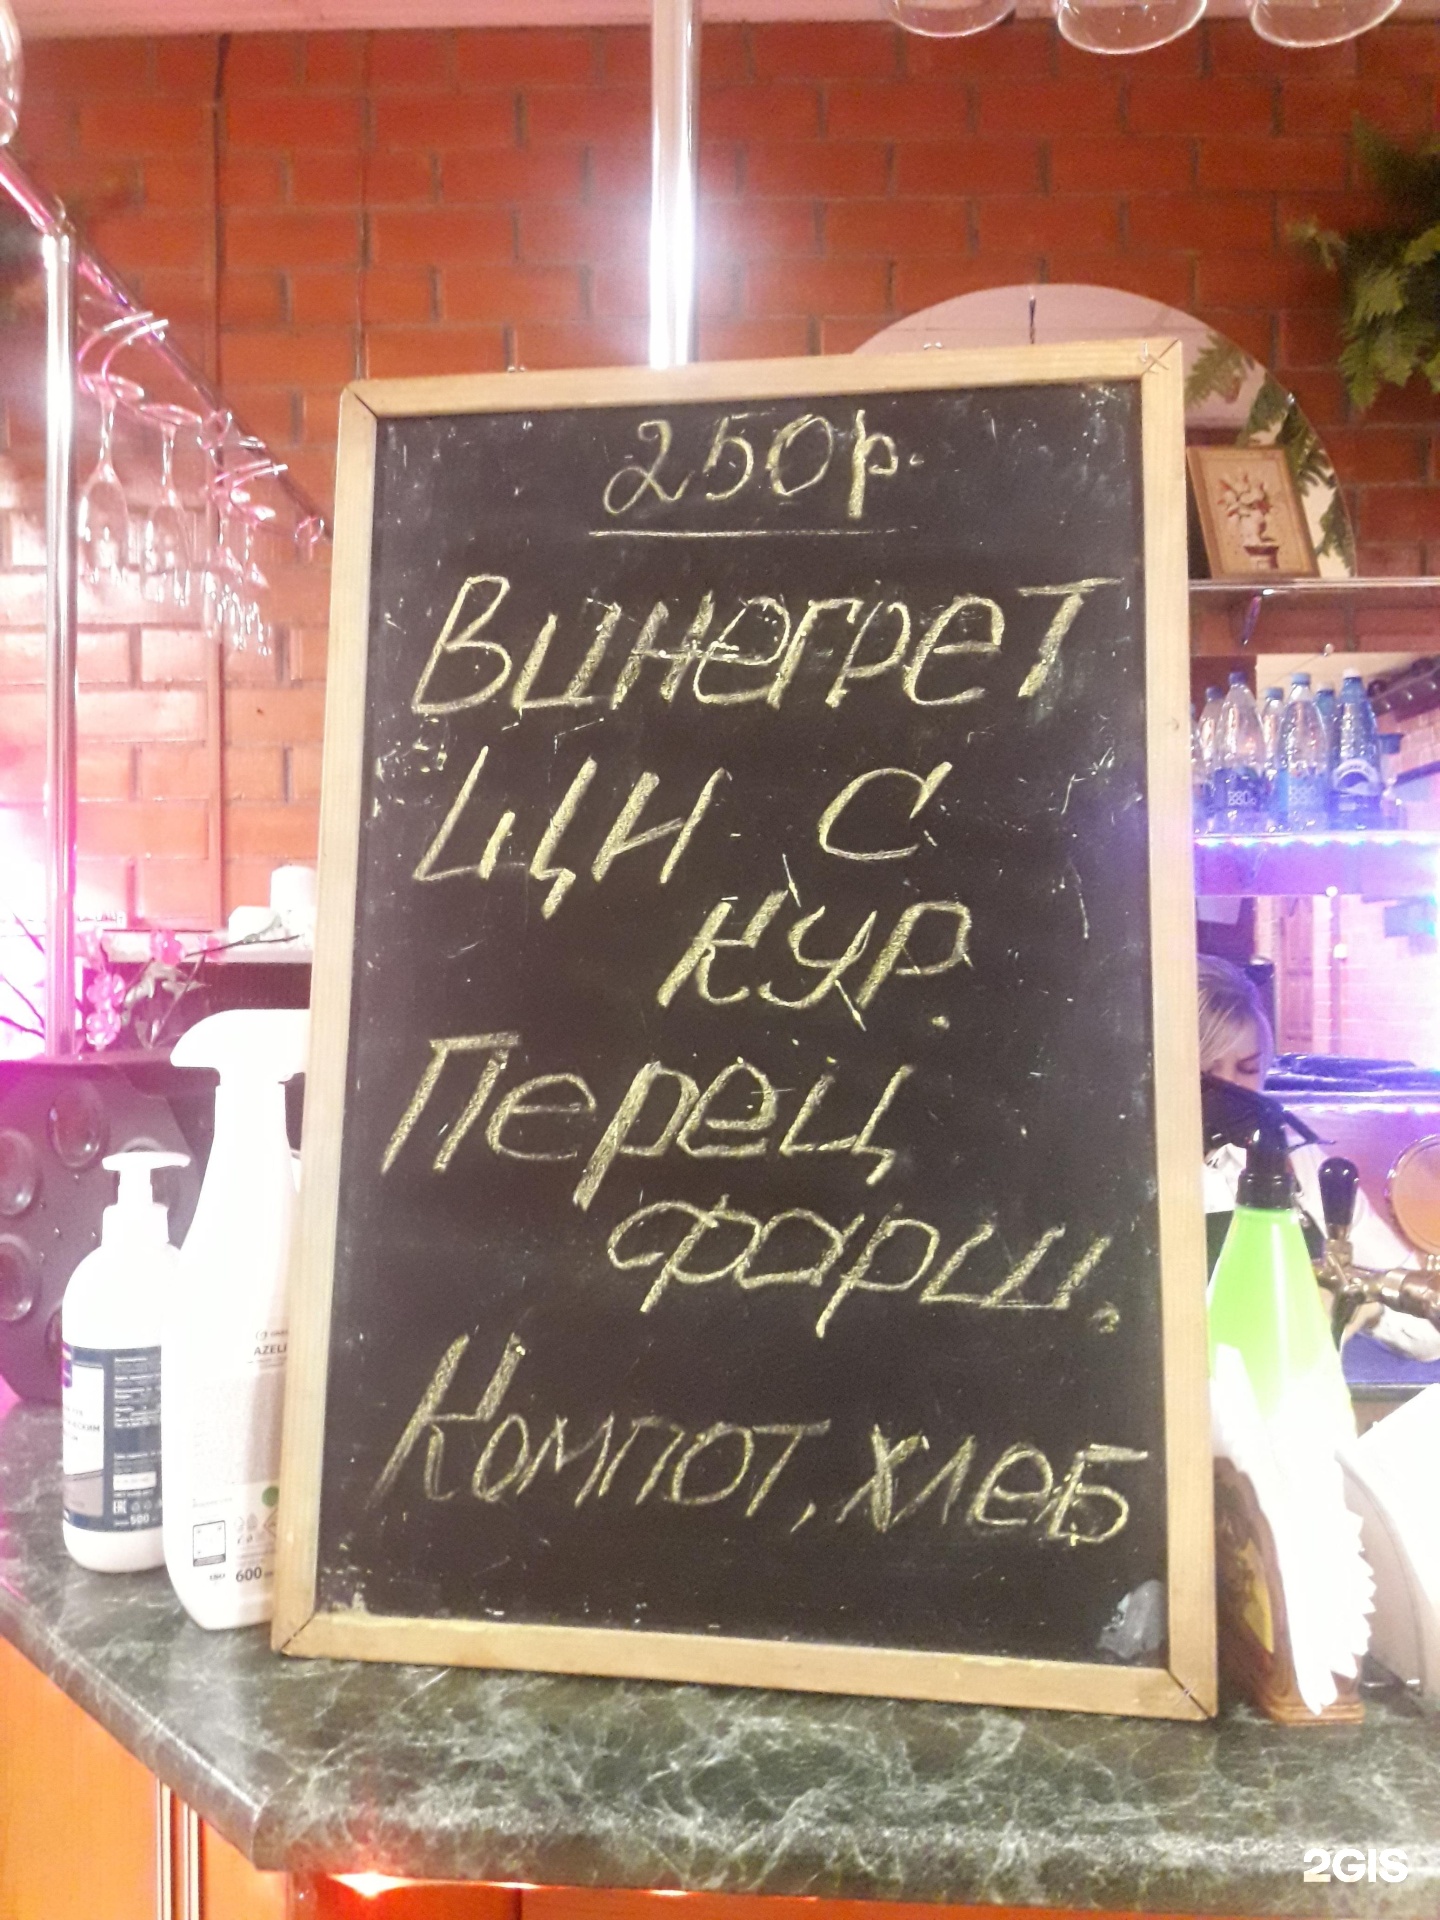 250р.
Винегрет
Щи с
кур.
Перец
фарш.
Компот, хлеб
AZEL
500
600
2GIS